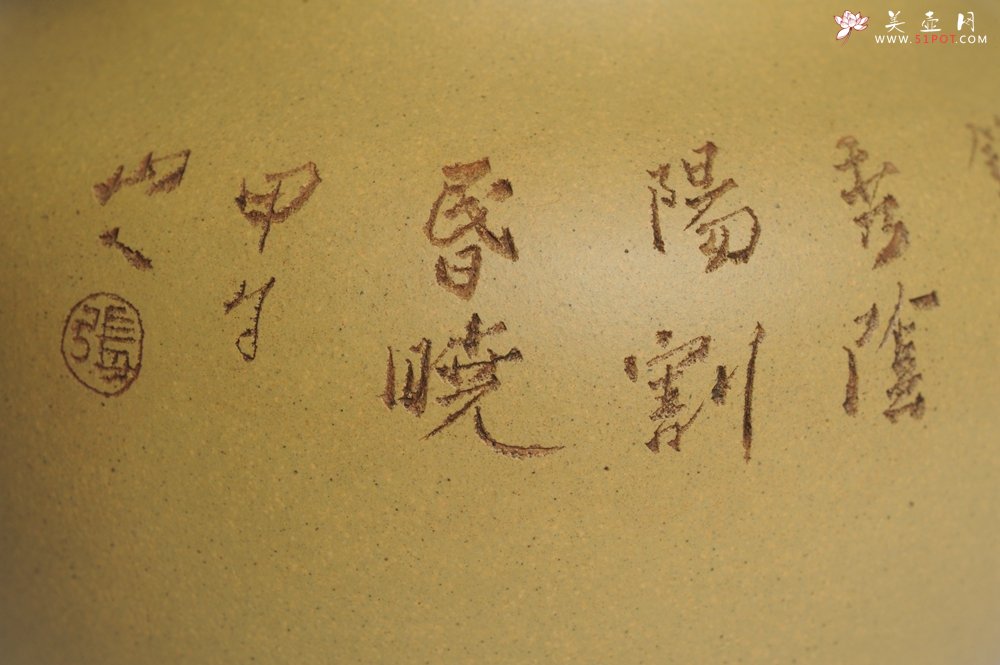 美壶网
WWW.51POT.COM
秀陰
陽割
昏曉
甲午
張